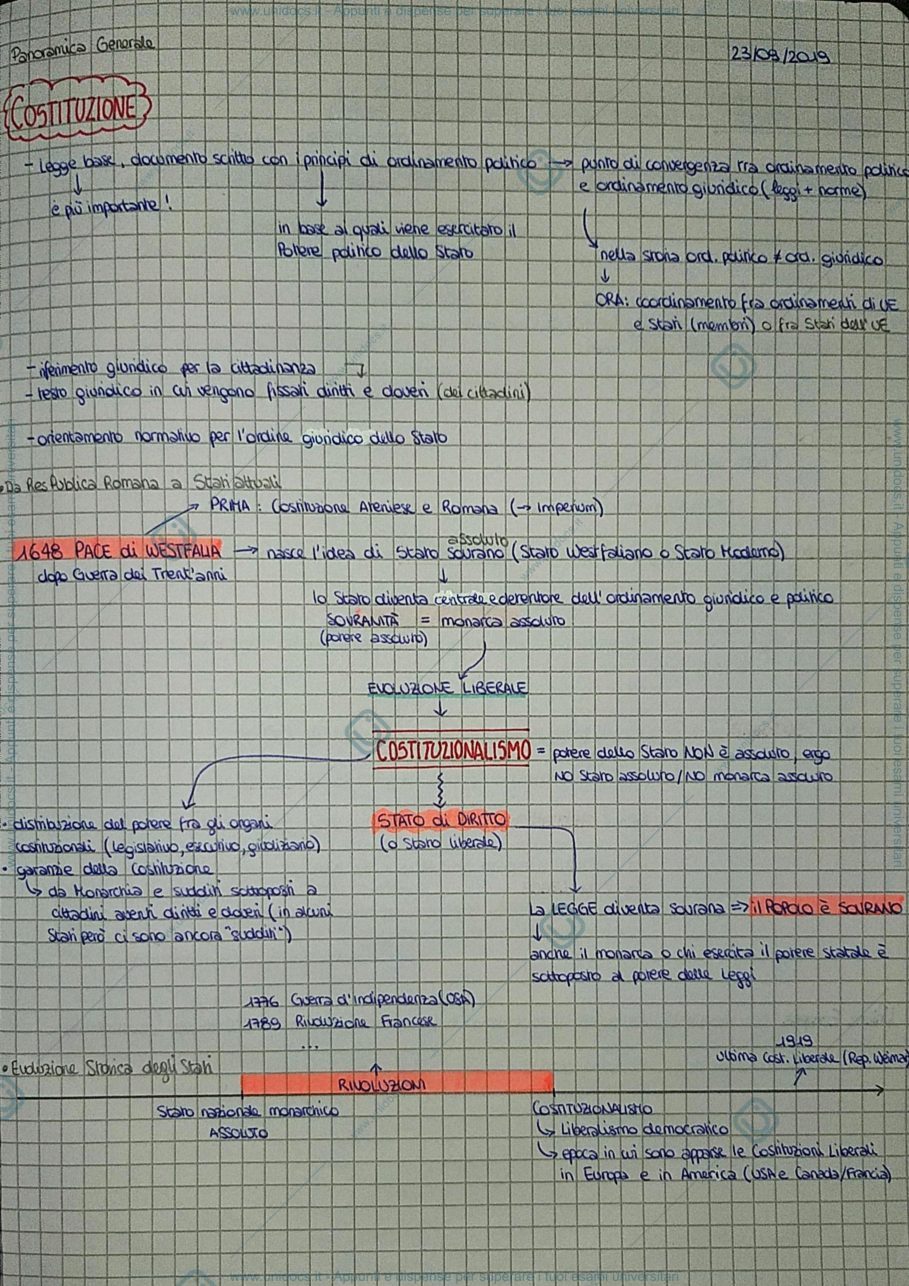 www.unidocs.it - Appunti e dispense per superare i tuoi esami universitari
Panoramica Generale
23/09/2019
COSTITUZIONE
- legge base, documento scritto con i principi di ordinamento politico → punto di convergenza tra ordinamento politico
e ordinamento giuridico (leggi + norme)
↓
è più importante!
in base ai quali viene esercitato il
Potere politico dello Stato
nella storia ord. politico ≠ ord. giuridico
↓
ORA: coordinamento fra ordinamenti di UE
e Stati (membri) o fra Stati dell'UE
- riferimento giuridico per la cittadinanza
- testo giuridico in cui vengono fissati diritti e doveri (dei cittadini)
- orientamento normativo per l'ordine giuridico dello Stato
• Da Res Publica Romana a Stati attuali
→ PRIMA: Costituzione Ateniese e Romana (→ Imperium)
1648 PACE di WESTFALIA → nasce l'idea di Stato sovrano assoluto (Stato Westfaliano o Stato Moderno)
dopo Guerra dei Trent'anni
↓
lo Stato diventa centrale e detentore dell'ordinamento giuridico e politico
SOVRANITÀ = monarca assoluto
(potere assoluto)
EVOLUZIONE LIBERALE
↓
COSTITUZIONALISMO = potere dello Stato NON è assoluto, ergo
NO Stato assoluto/NO monarca assoluto
• distribuzione del potere fra gli organi
costituzionali (legislativo, esecutivo, giudiziario)
• garanzie della Costituzione
↳ da Monarchia e sudditi sottoposti a
cittadini aventi diritti e doveri (in alcuni
Stati però ci sono ancora "sudditi")
STATO di DIRITTO
(o Stato liberale)
La LEGGE diventa sovrana ⇒ il POPOLO è SOVRANO
↓
anche il monarca o chi esercita il potere statale è
sottoposto al potere delle leggi
1776 Guerra d'Indipendenza (USA)
1789 Rivoluzione Francese
...
• Evoluzione Storica degli Stati
RIVOLUZIONI
1919
ultima Cost. Liberale (Rep. Weimar)
Stato nazionale monarchico
ASSOLUTO
COSTITUZIONALISMO
↳ Liberalismo democratico
↳ epoca in cui sono apparse le Costituzioni Liberali
in Europa e in America (USA e Canada/Francia)
www.unidocs.it - Appunti e dispense per superare i tuoi esami universitari